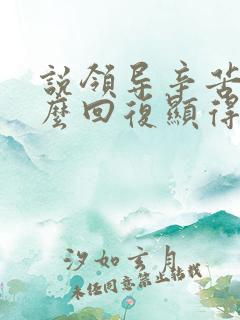 說領导辛苦
麼回復顯得
汐如玄月
未经同意禁止转载